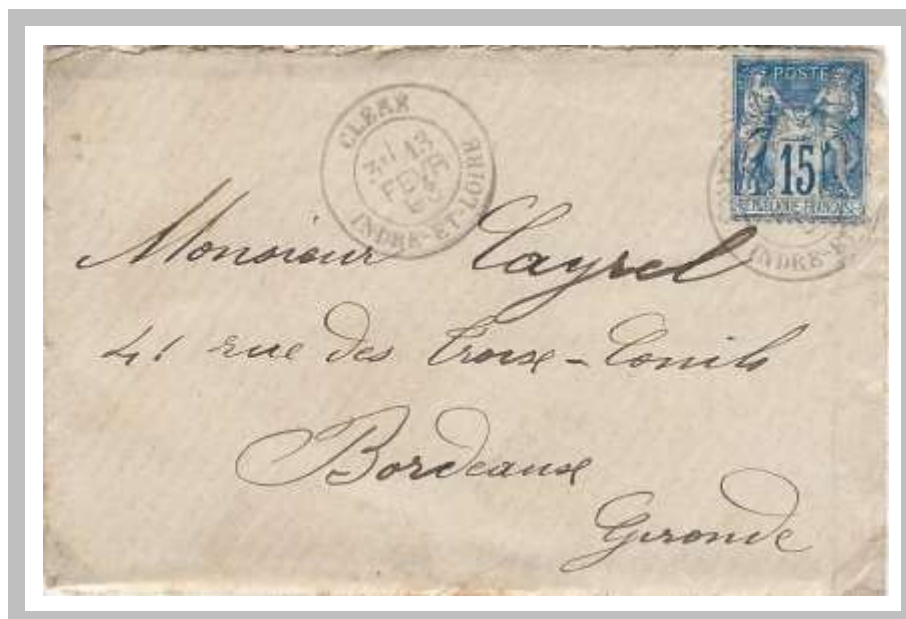 CLERE
3E 13
FEVR
INDRE-ET-LOIRE
POSTE
15
REPUBLIQUE FRANCAISE
INDRE-E
Monsieur Cayrel
41 rue des Trois-Conils
Bordeaux
Gironde